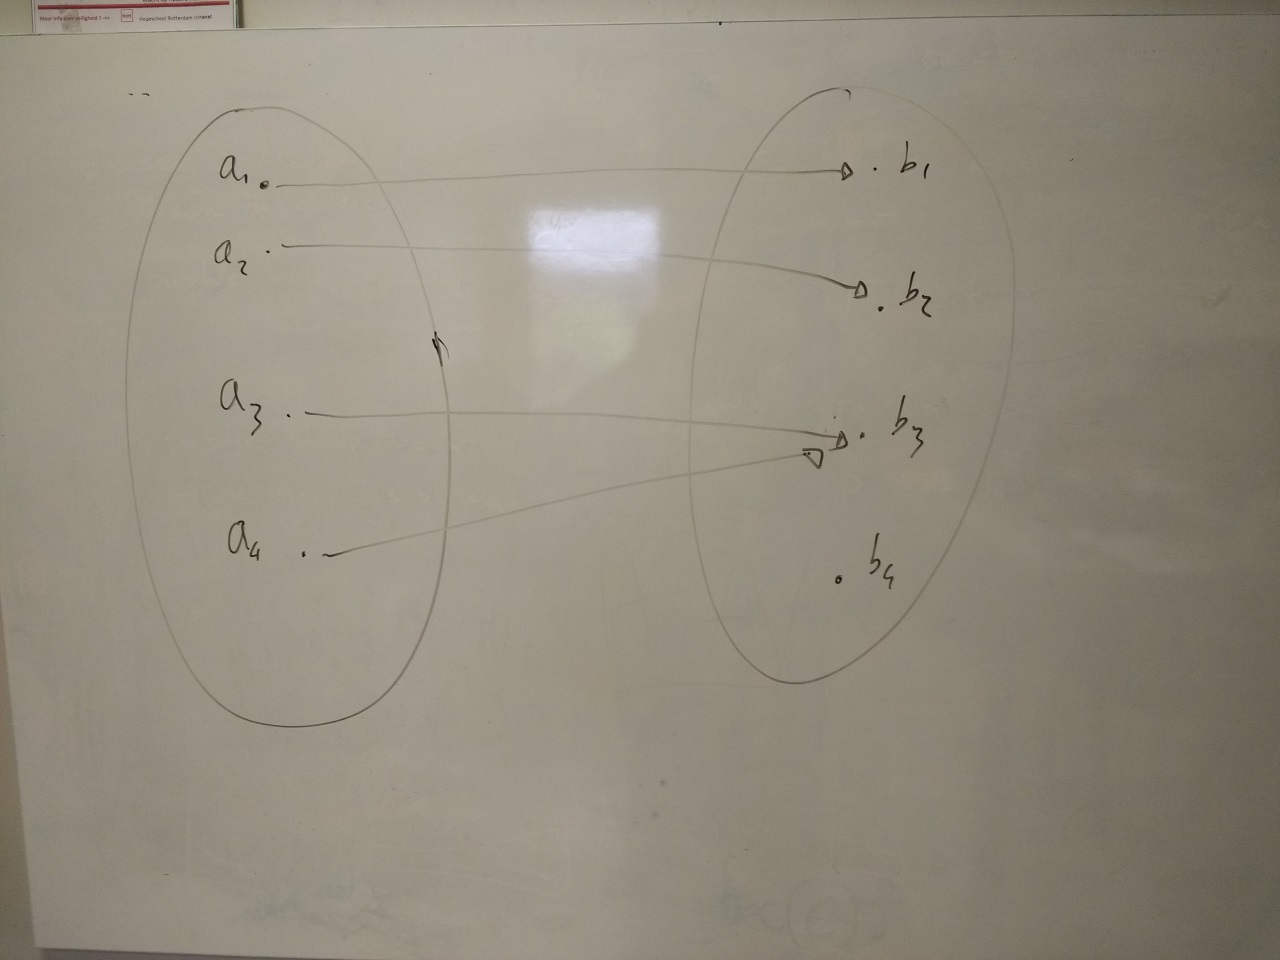 Meer info over veiligheid? -->
Hogeschool Rotterdam Intranet
a₁
b₁
a₂
b₂
a₃
b₃
a₄
b₄